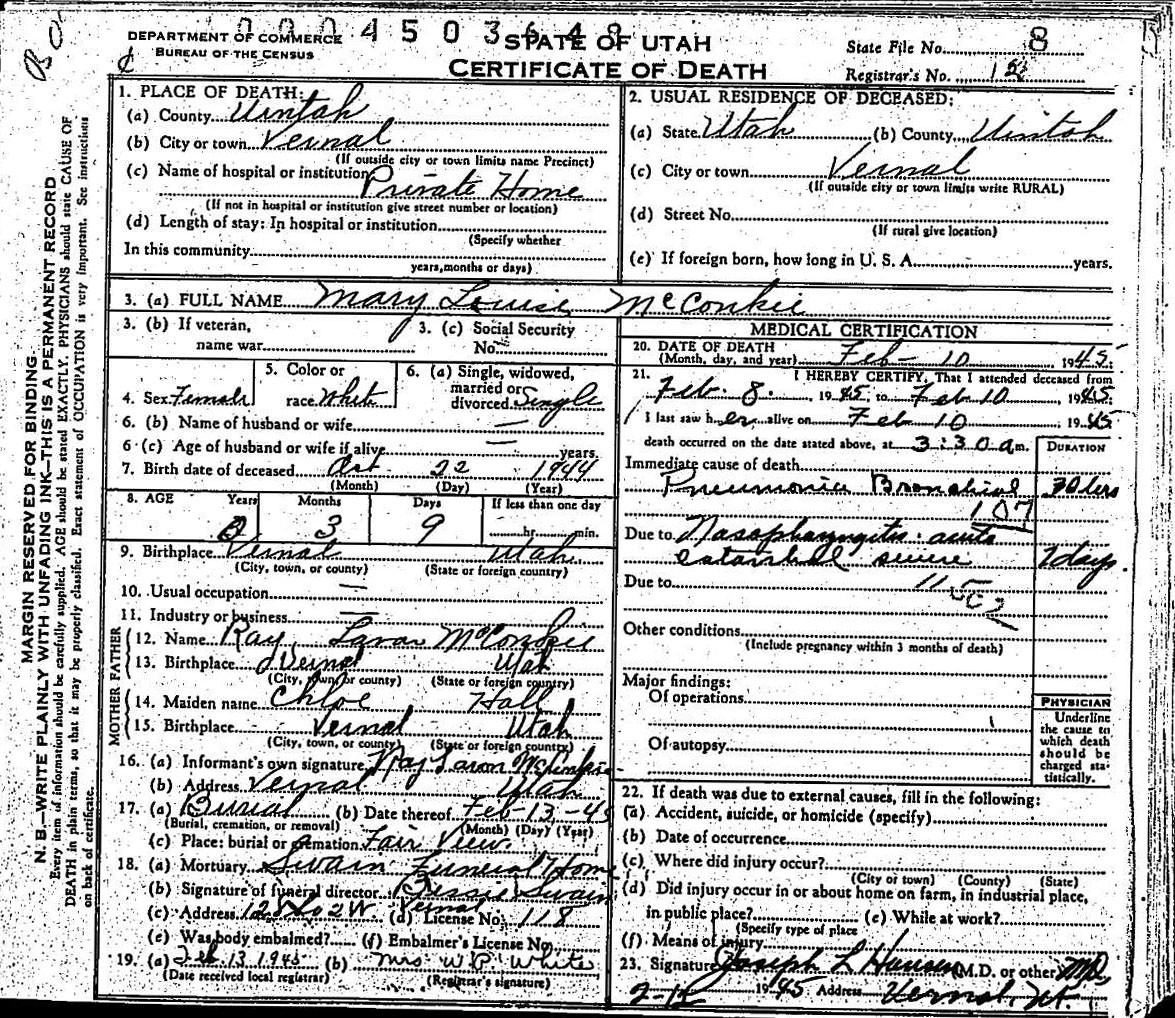 DEPARTMENT OF COMMERCE
BUREAU OF THE CENSUS
STATE OF UTAH
CERTIFICATE OF DEATH
State File No. 8
Registrar's No.
MARGIN RESERVED FOR BINDING
N. B.—WRITE PLAINLY WITH UNFADING INK—THIS IS A PERMANENT RECORD
Every item of information should be carefully supplied. AGE should be stated EXACTLY. PHYSICIANS should state CAUSE OF
DEATH in plain terms, so that it may be properly classified. Exact statement of OCCUPATION is very important. See instructions
on back of certificate.
1. PLACE OF DEATH:
(a) County Uintah
(b) City or town Vernal
(If outside city or town limits name Precinct)
(c) Name of hospital or institution
Private Home
(If not in hospital or institution give street number or location)
(d) Length of stay: In hospital or institution
(Specify whether
In this community
years, months or days)
2. USUAL RESIDENCE OF DECEASED:
(a) State Utah (b) County Uintah
(c) City or town Vernal
(If outside city or town limits write RURAL)
(d) Street No.
(If rural give location)
(e) If foreign born, how long in U. S. A. years.
3. (a) FULL NAME Mary Louise McConkie
3. (b) If veteran,
name war
3. (c) Social Security
No.
4. Sex Female
5. Color or
race White
6. (a) Single, widowed,
married or
divorced Single
6. (b) Name of husband or wife —
6. (c) Age of husband or wife if alive — years.
7. Birth date of deceased Oct 22 1944
(Month) (Day) (Year)
8. AGE Years Months Days If less than one day
3 9 hr. min.
9. Birthplace Vernal Utah
(City, town, or county) (State or foreign country)
10. Usual occupation —
11. Industry or business —
FATHER
12. Name Ray Lavar McConkie
13. Birthplace Vernal Utah
(City, town or county) (State or foreign country)
MOTHER
14. Maiden name Chloe Hall
15. Birthplace Vernal Utah
(City, town, or county) (State or foreign country)
16. (a) Informant's own signature Ray McConkie
(b) Address Vernal Utah
17. (a) Burial (b) Date thereof Feb-13-45
(Burial, cremation, or removal) (Month) (Day) (Year)
(c) Place: burial or cremation Fair View
18. (a) Mortuary Swain Funeral Home
(b) Signature of funeral director Bessie Swain
(c) Address 128 No 2 W Vernal (d) License No. 118
(e) Was body embalmed? (f) Embalmer's License No.
19. (a) Feb 13 1945 (b) Mrs W. P. White
(Date received local registrar) (Registrar's signature)
MEDICAL CERTIFICATION
20. DATE OF DEATH
(Month, day, and year) Feb - 10 1945
21. I HEREBY CERTIFY, That I attended deceased from
Feb. 8. 1945 to Feb 10, 1945
I last saw her alive on Feb 10 1945
death occurred on the date stated above, at 3:30 a m.
DURATION
Immediate cause of death
Pneumonia Bronchial
107
Due to Nasopharyngitis acute
catarrhal severe 7 days.
Due to
Other conditions
(Include pregnancy within 3 months of death)
Major findings:
Of operations
Of autopsy
PHYSICIAN
Underline
the cause to
which death
should be
charged sta-
tistically.
22. If death was due to external causes, fill in the following:
(a) Accident, suicide, or homicide (specify)
(b) Date of occurrence
(c) Where did injury occur?
(City or town) (County) (State)
(d) Did injury occur in or about home on farm, in industrial place,
in public place? (e) While at work?
(Specify type of place
(f) Means of injury
23. Signature Joseph L Hansen (M.D. or other) MD
1945 Address Vernal, Ut.